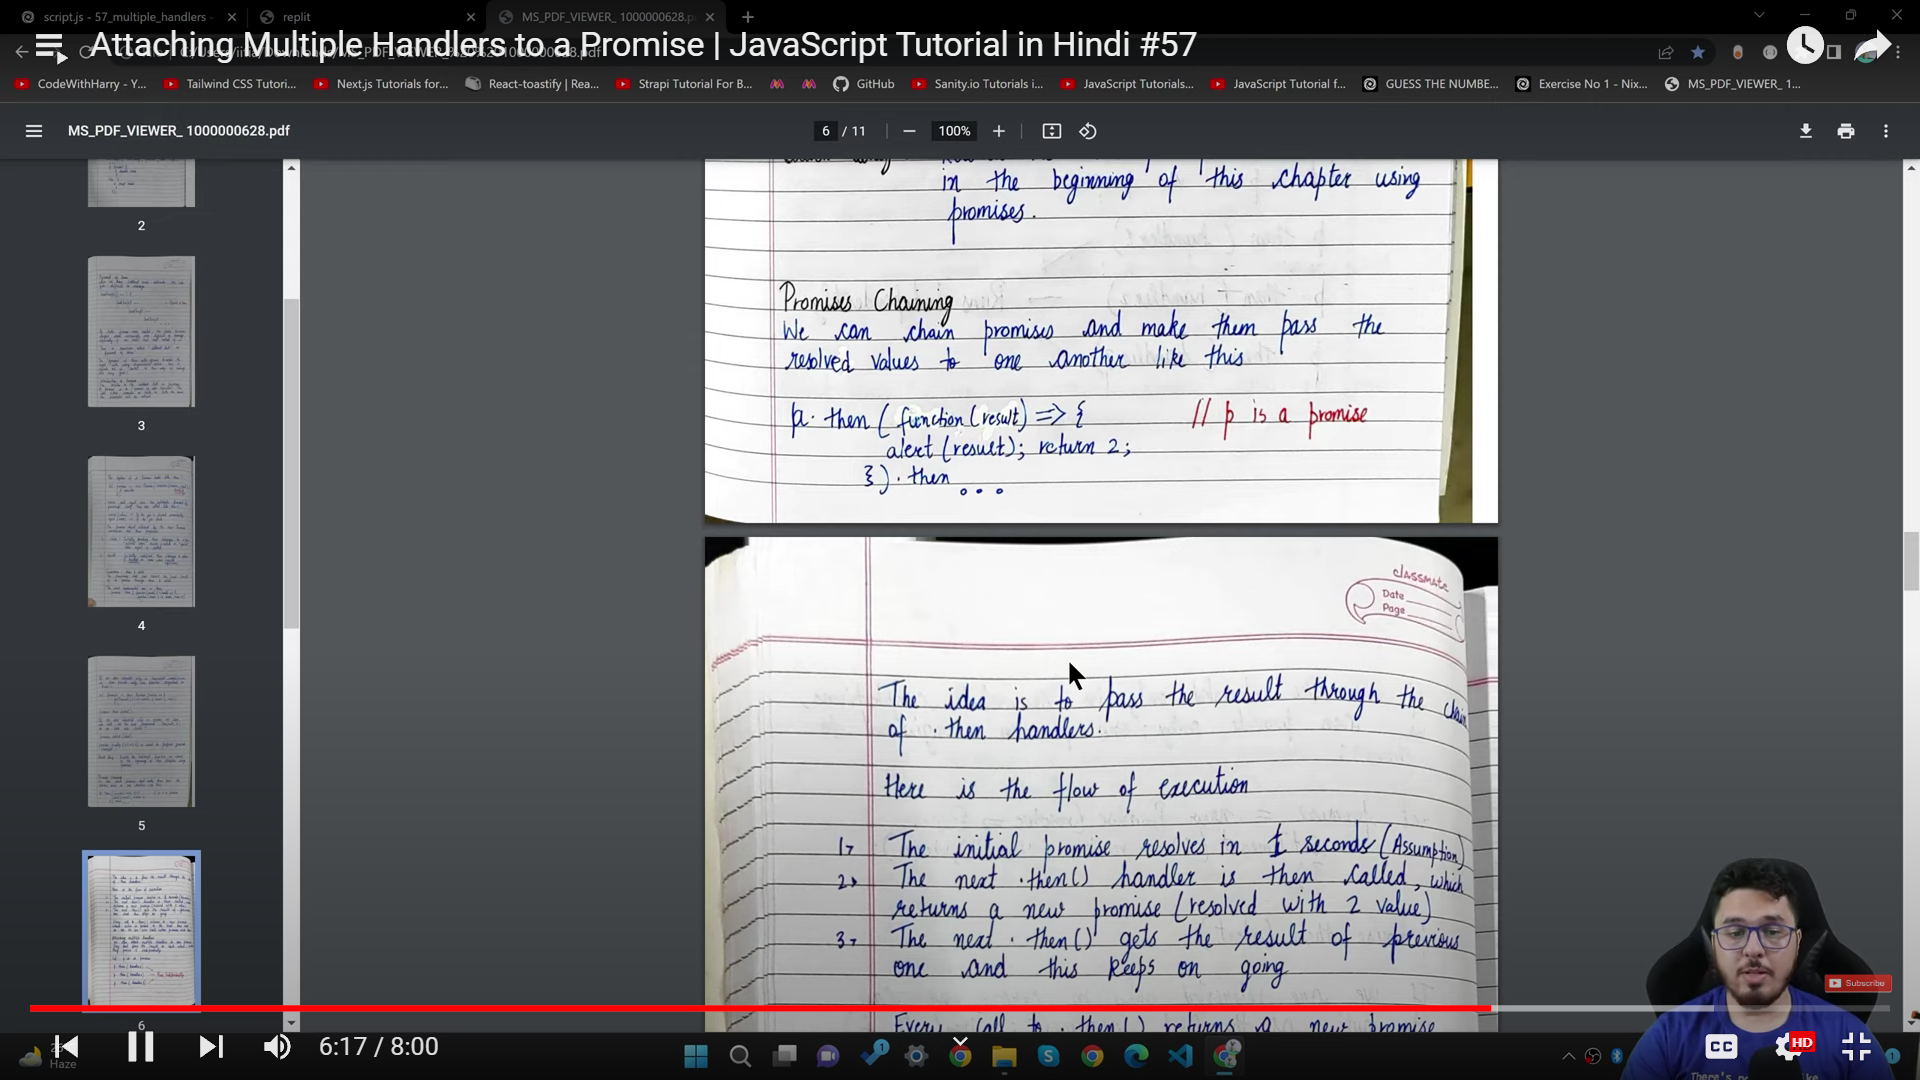 script.js - 57_multiple_handlers
replit
MS_PDF_VIEWER_ 1000000628.p
Attaching Multiple Handlers to a Promise | JavaScript Tutorial in Hindi #57
CodeWithHarry - Y...
Tailwind CSS Tutori...
Next.js Tutorials for...
React-toastify | Rea...
Strapi Tutorial For B...
GitHub
Sanity.io Tutorials i...
JavaScript Tutorials...
JavaScript Tutorial f...
GUESS THE NUMBE...
Exercise No 1 - Nix...
MS_PDF_VIEWER_ 1...
MS_PDF_VIEWER_ 1000000628.pdf
6 / 11
100%
2
3
4
5
6
in the beginning of this chapter using
promises.
Promises Chaining
We can chain promises and make them pass the
resolved values to one another like this
p. then ( function (result) => { // p is a promise
alert (result); return 2;
}) . then ...
classmate
Date
Page
The idea is to pass the result through the chain
of .then handlers.
Here is the flow of execution
1→ The initial promise resolves in 1 seconds (Assumption)
2→ The next .then() handler is then called, which
returns a new promise (resolved with 2 value)
3→ The next .then() gets the result of previous
one and this keeps on going
Every call to .then() returns a new promise
Subscribe
6:17 / 8:00
Haze
CC
HD